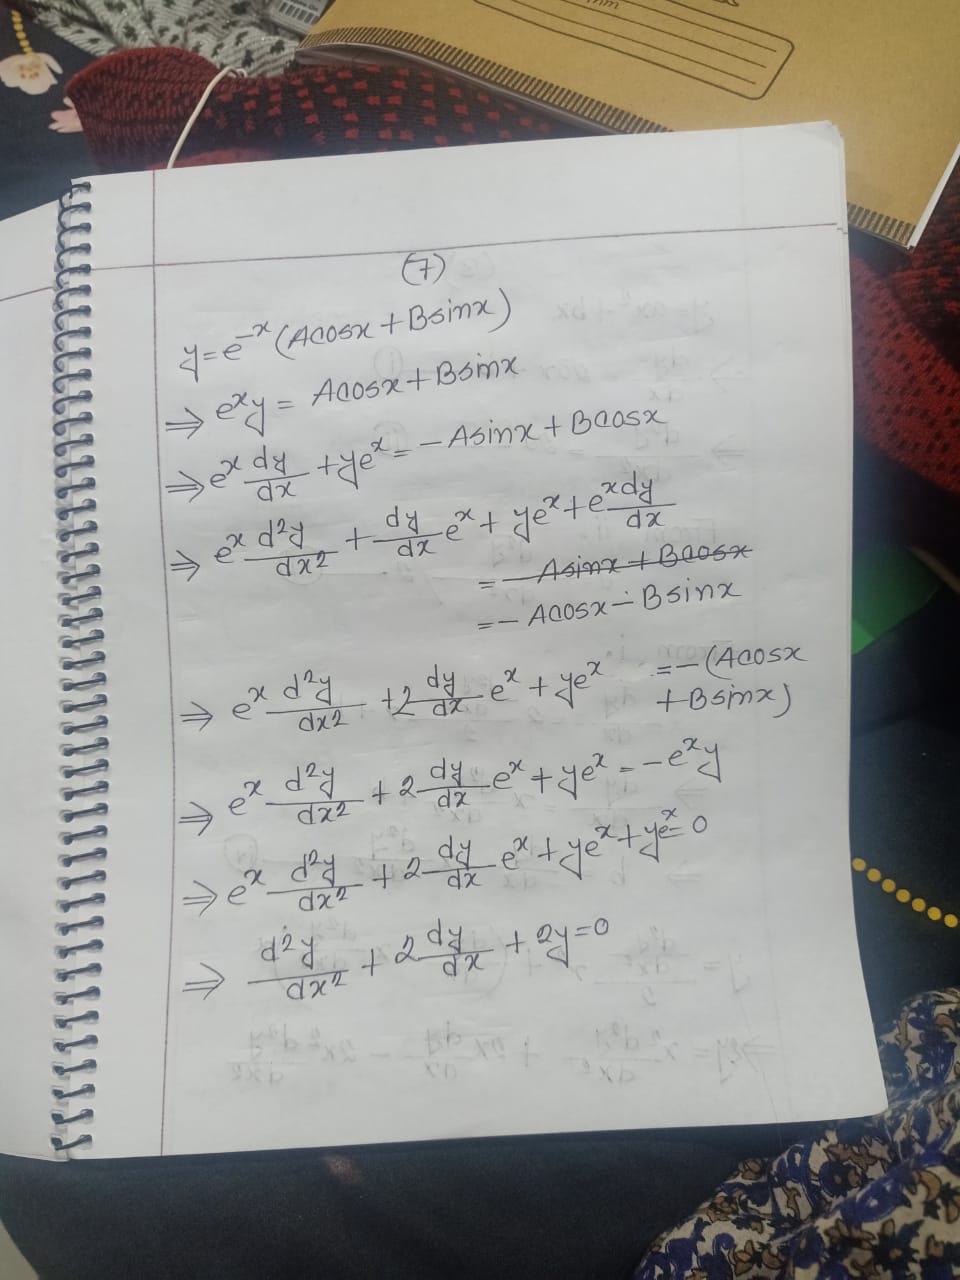 (7)
y = e^-x (Acosx + Bsinx)
⇒ e^x y = Acosx + Bsinx
⇒ e^x dy/dx + ye^x = -Asinx + Bcosx
⇒ e^x d²y/dx² + dy/dx e^x + ye^x + e^x dy/dx
= - Asinx + Bcosx
= - Acosx - Bsinx
⇒ e^x d²y/dx² + 2 dy/dx e^x + ye^x = -(Acosx
+ Bsinx)
⇒ e^x d²y/dx² + 2 dy/dx e^x + ye^x = -e^x y
⇒ e^x d²y/dx² + 2 dy/dx e^x + ye^x + ye^x = 0
⇒ d²y/dx² + 2 dy/dx + 2y = 0